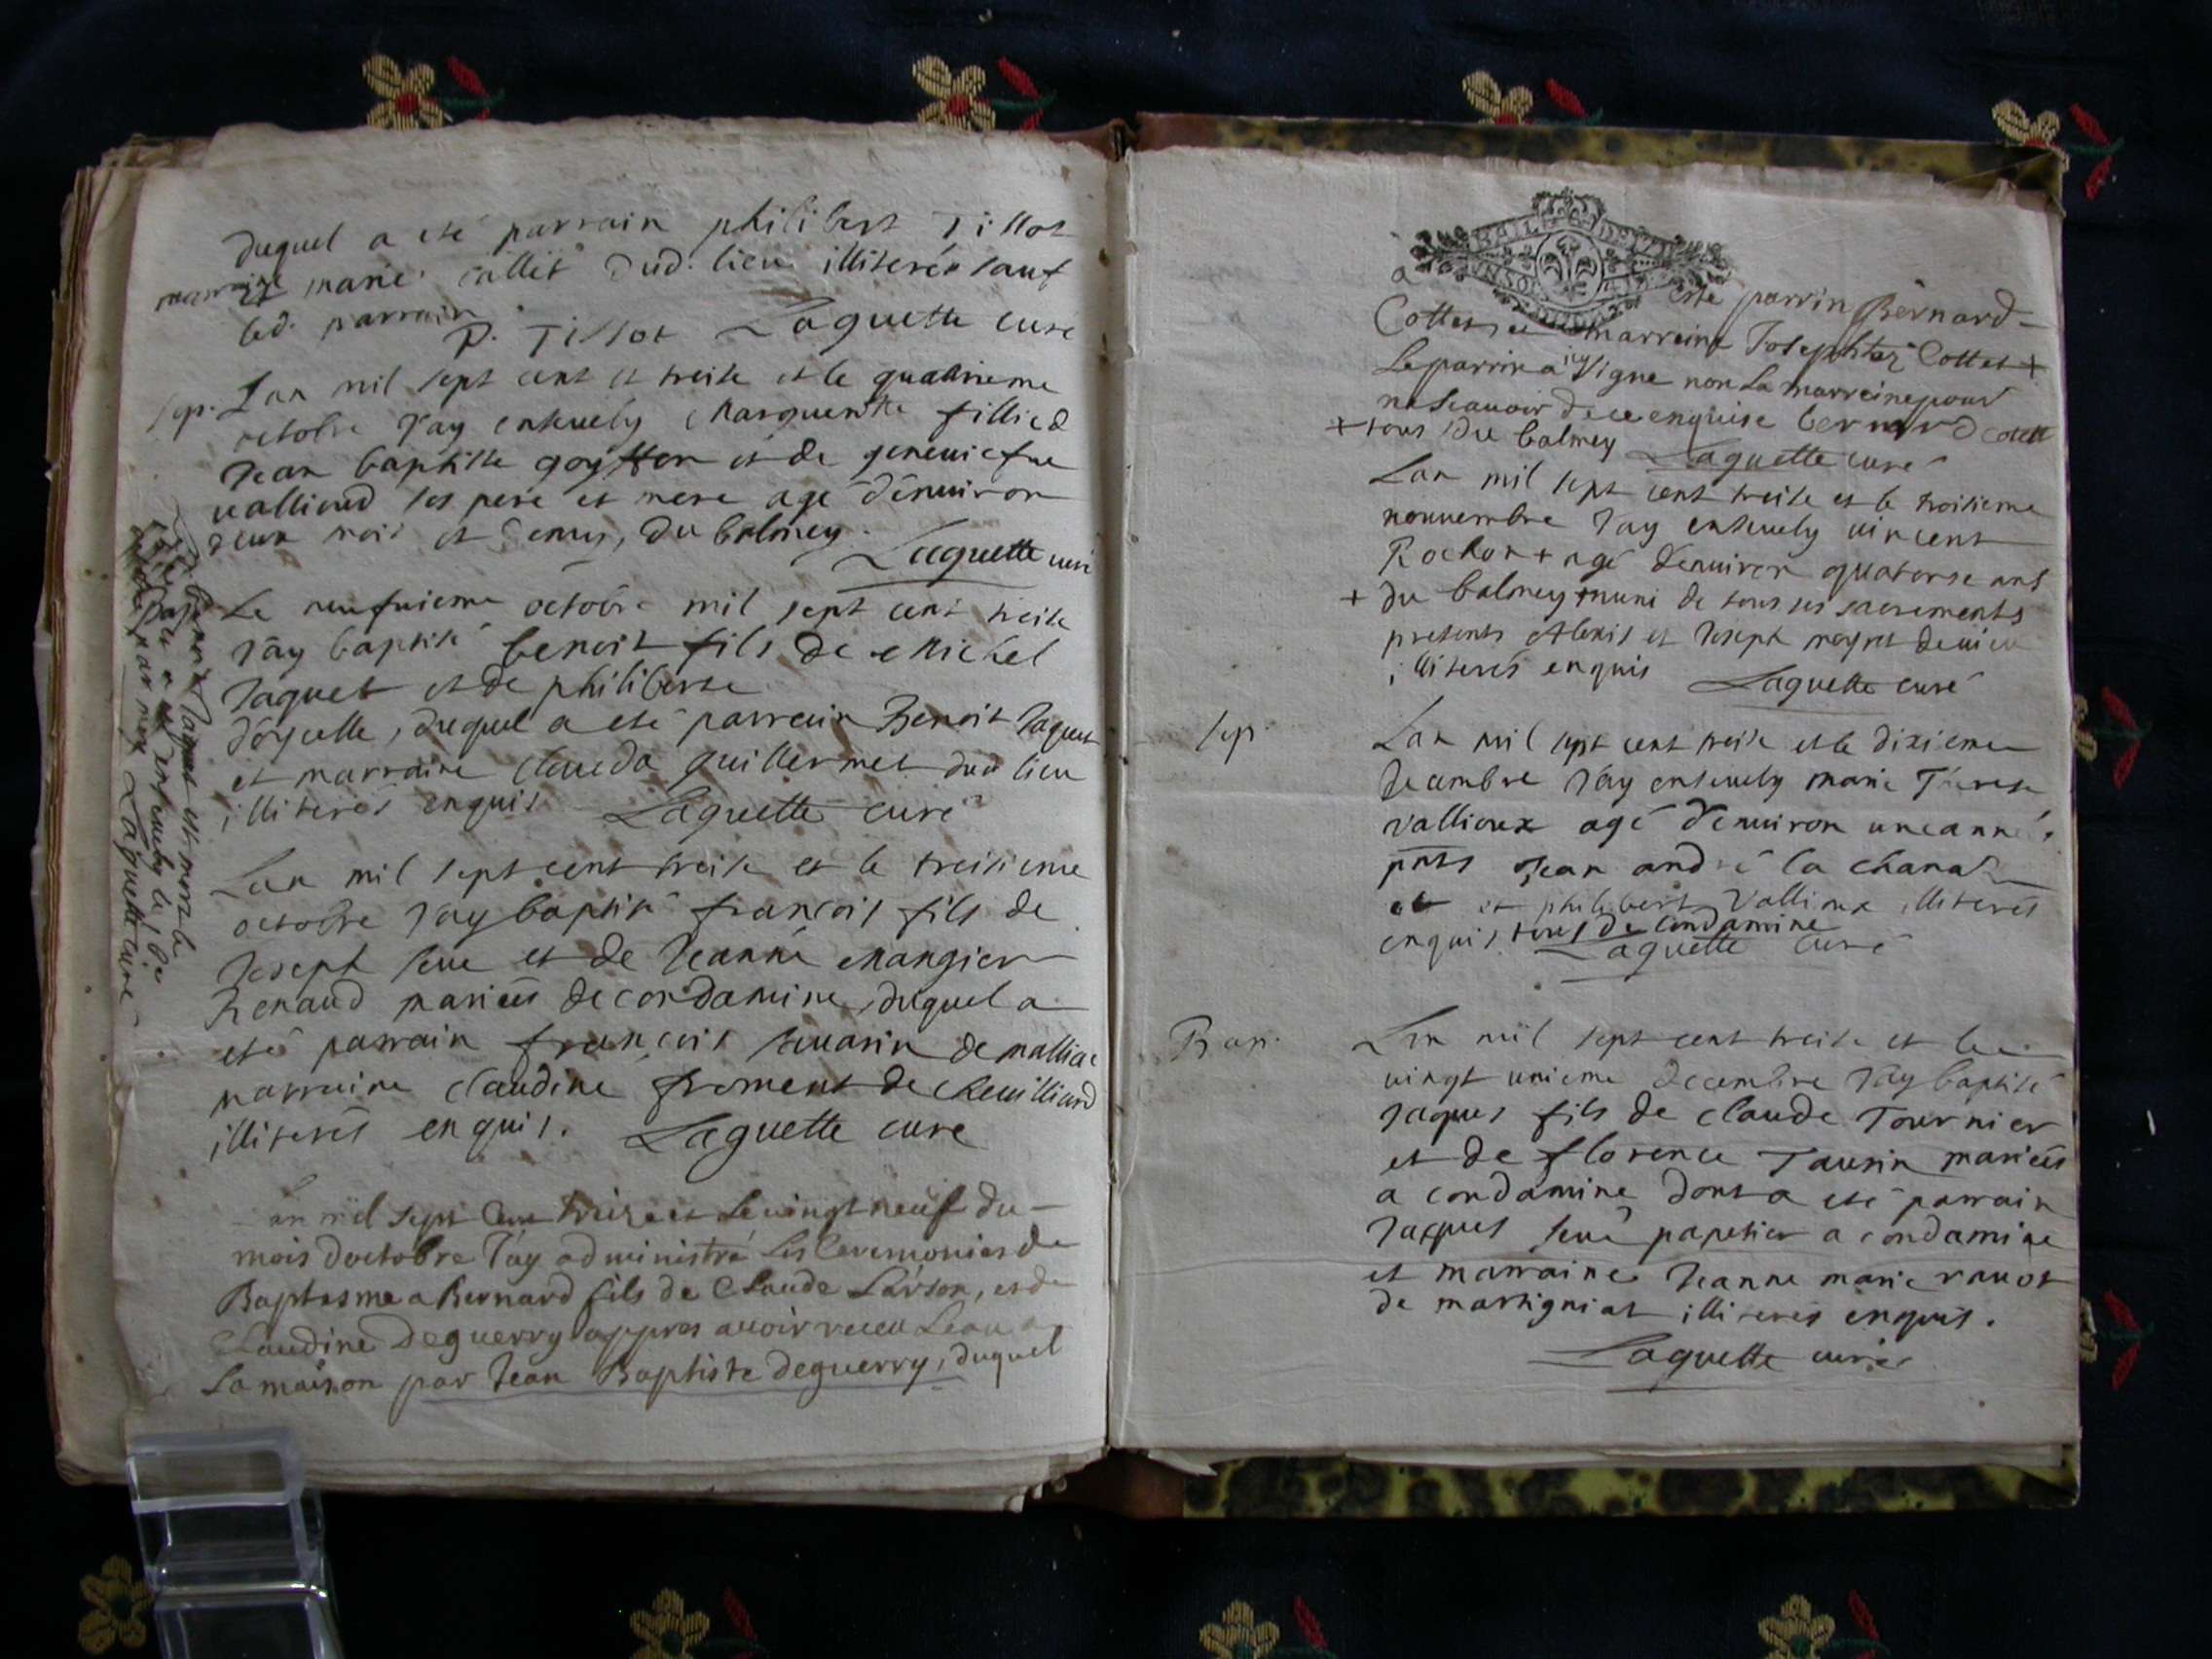 duquel a eté parrain philibert Tillot
marraine et marie callet dud. lieu illiterés sauf
led. parrain
P. Tillot Laguette curé
sep. Lan mil sept cent et treise et le quatrieme
octobre J'ay ensevely Margueritte fillie d
Jean baptiste goyffon et de geneviefve
vallioud ses pere et mere age d'environ
deux mois et demy, du balmey.
Laguette curé
bap. Le neufvieme octobre mil sept cent treise
J'ay baptisé benoit fils de Michel
Jaquet et de philiberte
doycelle, duquel a eté parrain Benoit Jaquet
et marraine clauda guillermet dud lieu
illiterés enquis Laguette curé
Lan mil sept cent treise et le treisieme
octobre J'ay baptisé françois fils de
Joseph seve et de Jeanne mangier
Renaud mariés de condamine, duquel a
eté parrain françois savarin de malliac
marraine claudine froment de chevilliard
illiterés enquis. Laguette cure
Benoit Jaquet est mort le
et a eté ensevely le
par moy Laguette curé
an mil sept Cent treize et Le vingt neuf du
mois doctobre J'ay administré Les Ceremonies de
Baptesme a Bernard fils de Claude Larson, et de
Claudine Deguerry appres avoir receu Leau a
La maison par Jean Baptiste deguerry, duquel
a esté parrin Bernard
Cottet, et marreine Josephte Cottet +
Le parrin a icy signe non La marreine pour
ne Scavoir de ce enquise bernard cotett
+ tous du balmey Laguette curé
Lan mil sept cent treise et le troisieme
nouvembre J'ay ensevely vincent
Rochon + agé d'environ quatorse ans
+ du balmey muni de tous ses sacrements
presents Alexis et Joseph
illiterés enquis Laguette curé
sep. Lan mil sept cent treise et le dixieme
decembre J'ay ensevely marie Terese
vallioux agé d'environ une anné.
pnts Jean andré la chana
et philibert Vallioux illiterés
enquis tous de Condamine
Laguette curé
Bap. Lan mil sept cent treise et le
vingt unieme decembre J'ay baptisé
Jaques fils de claude Tournier
et de florence Tavrin mariés
a condamine dont a eté parrain
Jacques sevé papetier a condamine
et marraine Jeanne marie ravot
de martigniat illiterés enquis.
Laguette curé